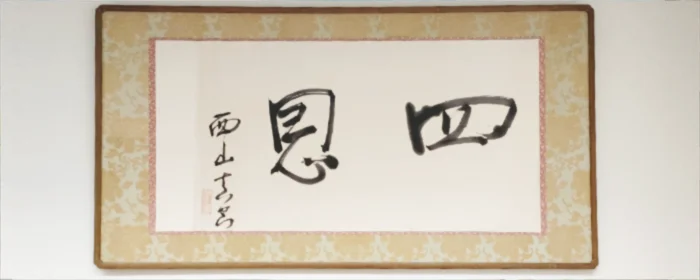 四恩
西山